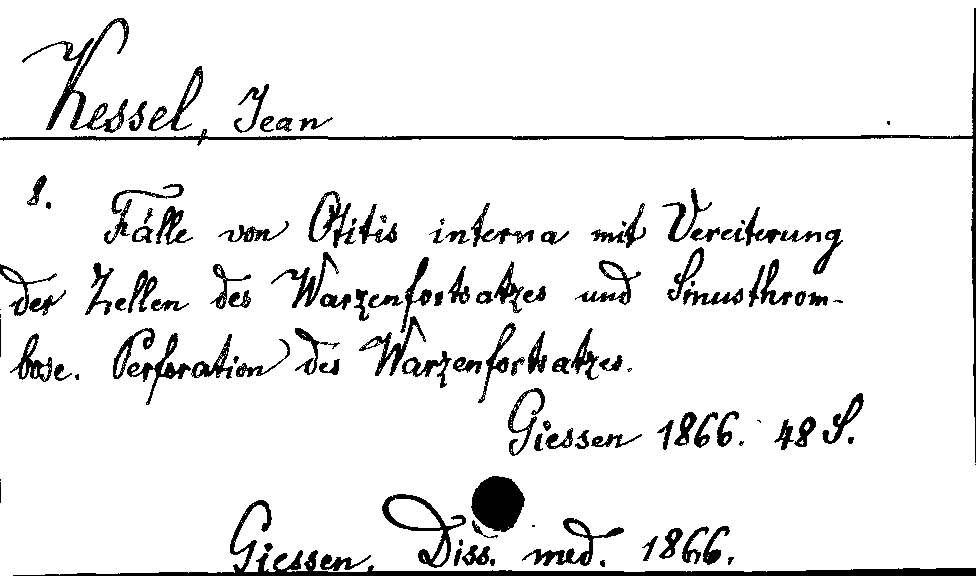 Kessel, Jean
8.
Fälle von Otitis interna mit Vereiterung
der Zellen des Warzenfortsatzes und Sinusthrom-
bose. Perforation des Warzenfortsatzes.
Giessen 1866. 48 S.
Giessen, Diss. med. 1866.